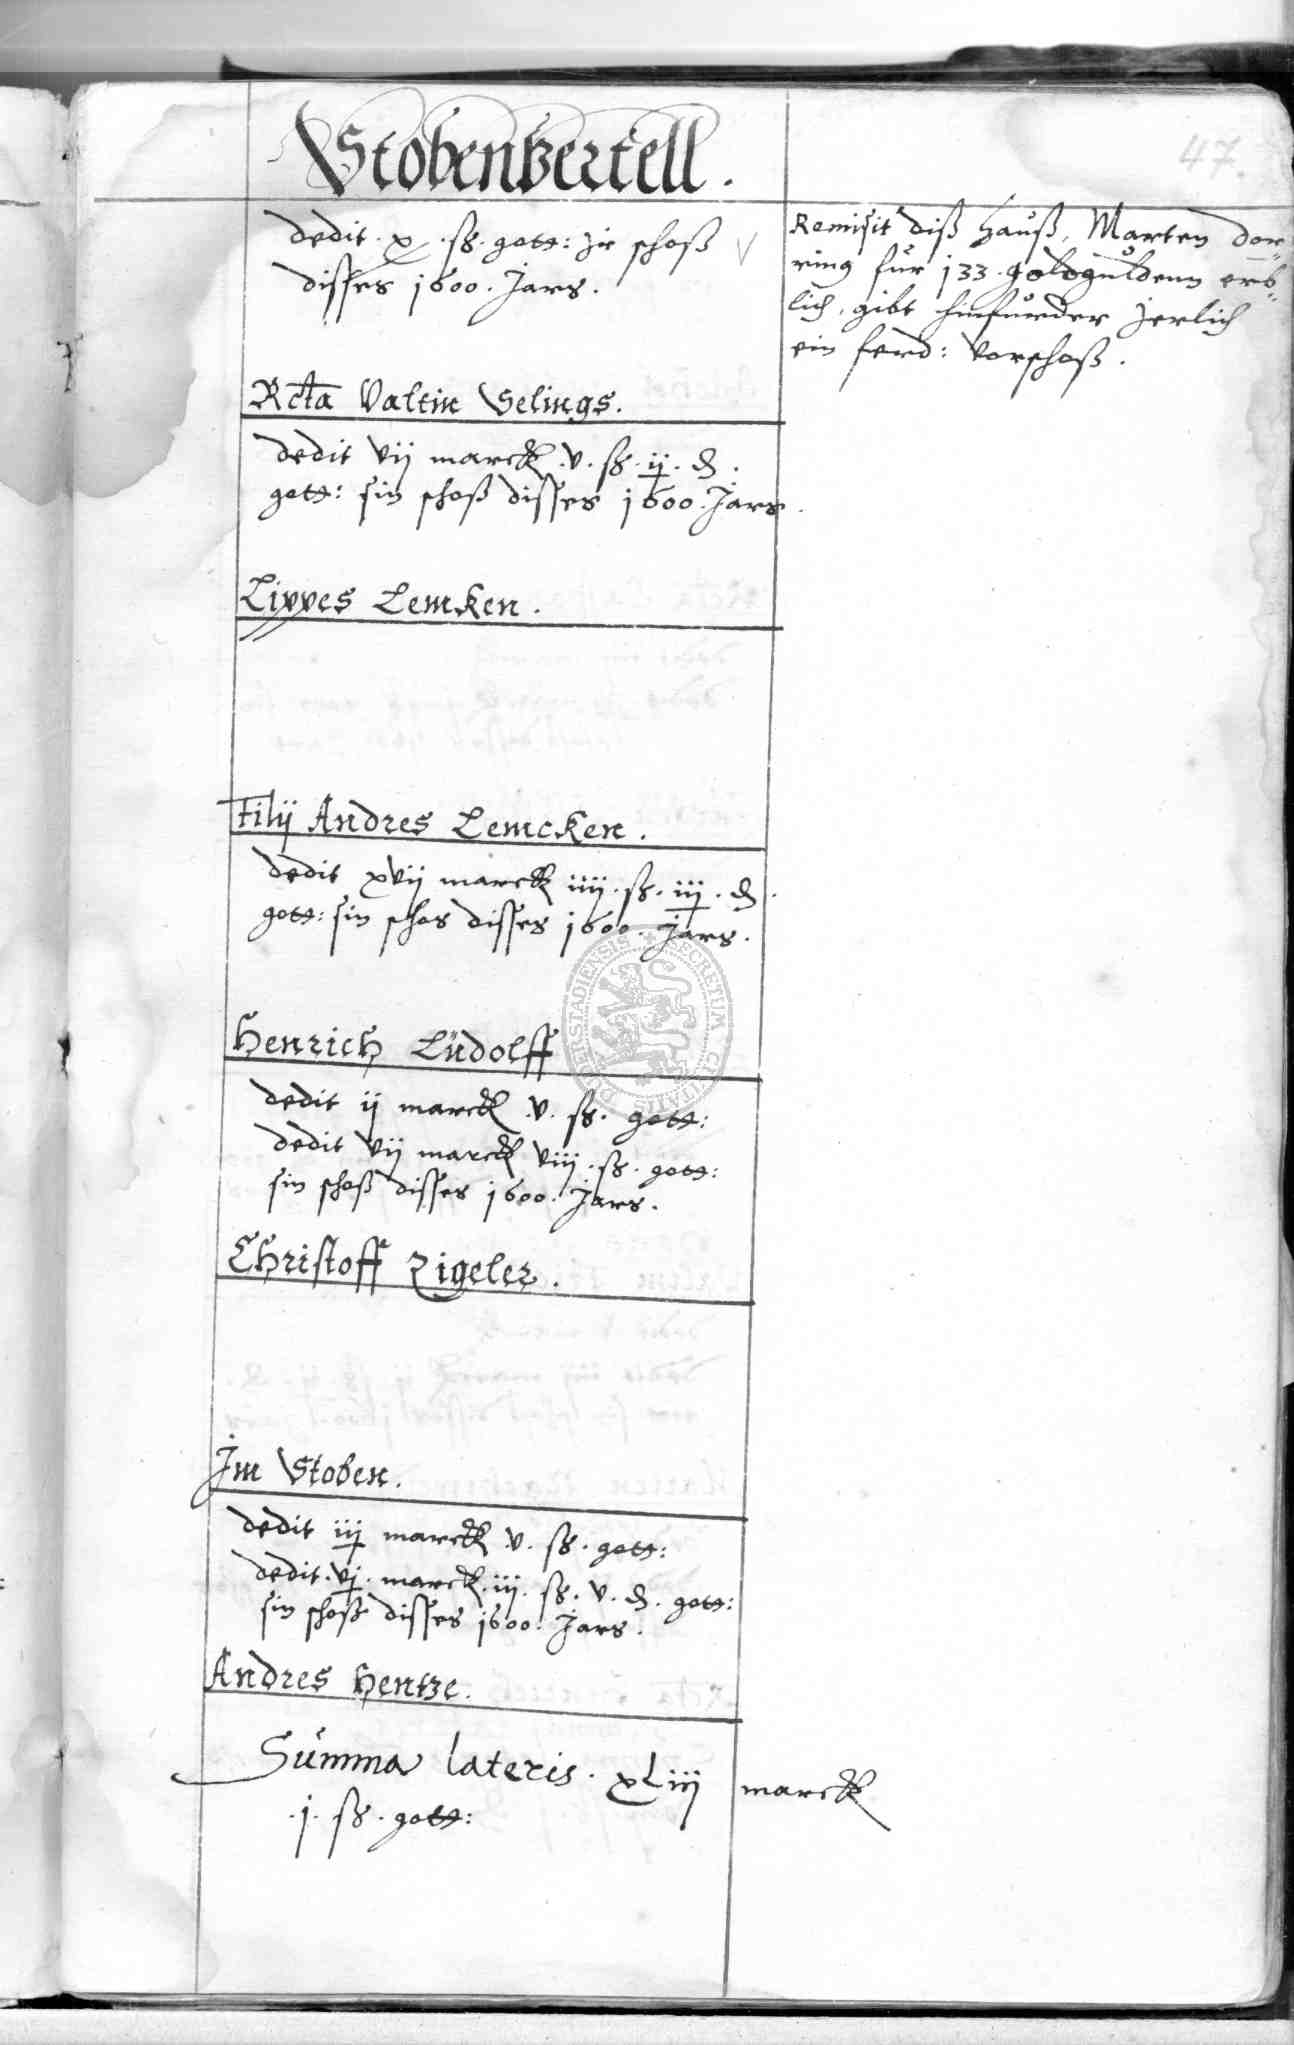 Stobenvertell.
47.
dedit . x . ß . gott: Jr schoß
disses 1600. Jars.
Remisit diß Hauß, Marten dor=
ring für 133. goldgulden erb=
lich, gibt hinfurder Jerlich
ein ferd: vorschoß.
Rcta Valtin Selings.
dedit vij marck .v. ß . ij . ₰.
gott: sin schoß disses 1600. Jars.
Lippes Lemken.
Filij Andres Lemcken.
dedit xvij marck iiij . ß . iij . ₰.
gott: sin schos disses 1600. Jars.
DUDERSTADIENSIS SECRETUM CIVITATIS
Henrich Lüdolff
dedit ij marck .v. ß . gott:
dedit vij marck viij . ß . gott:
sin schoß disses 1600. Jars.
Christoff Zigeler.
Jm Stoben.
dedit iij marck .v. ß . gott:
dedit . vj . marck . iij . ß . v . ₰ . gott:
sin schoß disses 1600. Jars.
Andres Hentze.
Summa lateris . xLiij marck
. j . ß . gott: